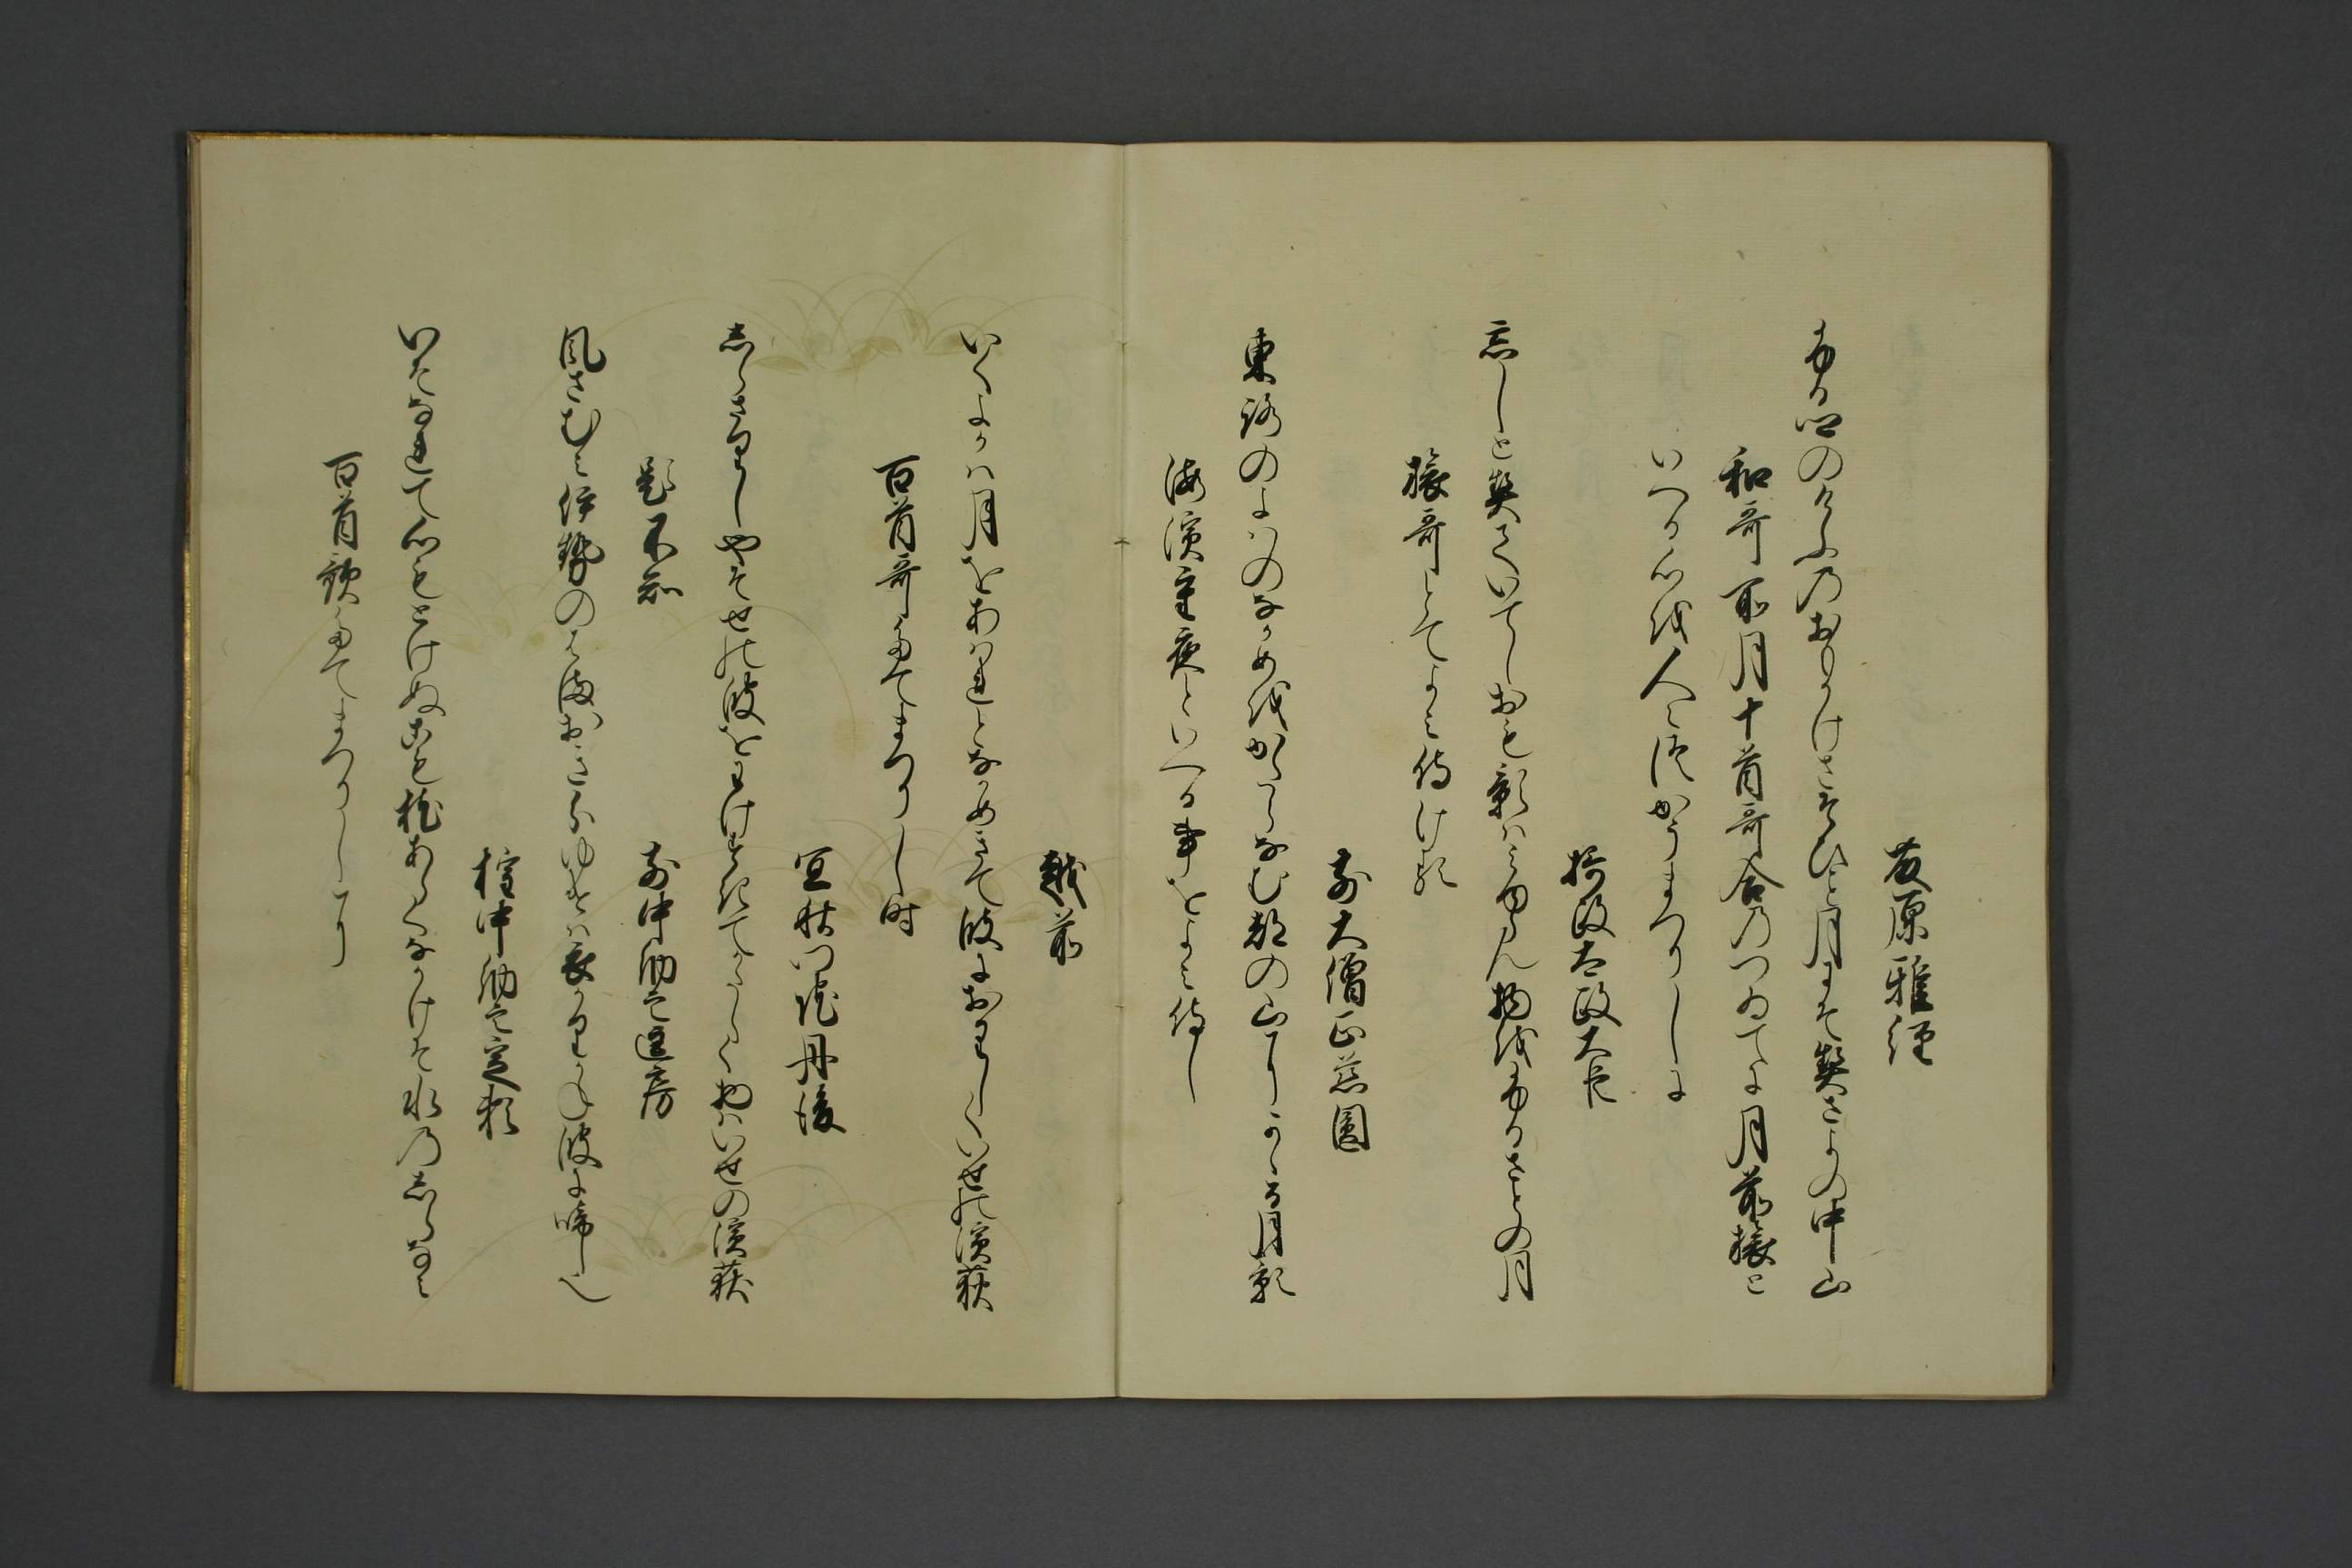 藤原雅経
ふる郷のけふのおもかけさそひこと月にそ契さよの中山
和哥所月十首哥合のつゐてに月前旅と
いへる心を人々つかうまつりしに
摂政太政大臣
忘しと契ていてしおも影はみゆらん物をふるさとの月
旅哥とてよみ侍ける
前大僧正慈圓
東路のよはのなかめをかたらなむ都の山にかゝる月影
海濱重夜といへる事をよみ侍し
越前
いくよかは月をあはれとなかめきて波におりしくいせの濱荻
百首哥たてまつりし時
宜秋門院丹後
しらさりしやそせの波をわけすきてかたしく物はいせの濱荻
題不知
前中納言匡房
風さむみ伊勢のはまおきわけゆけは衣かりかね波に啼也
権中納言定頼
いそなれて心もとけぬこも枕あらくなかけそ水のしらなみ
百首歌たてまつりしに